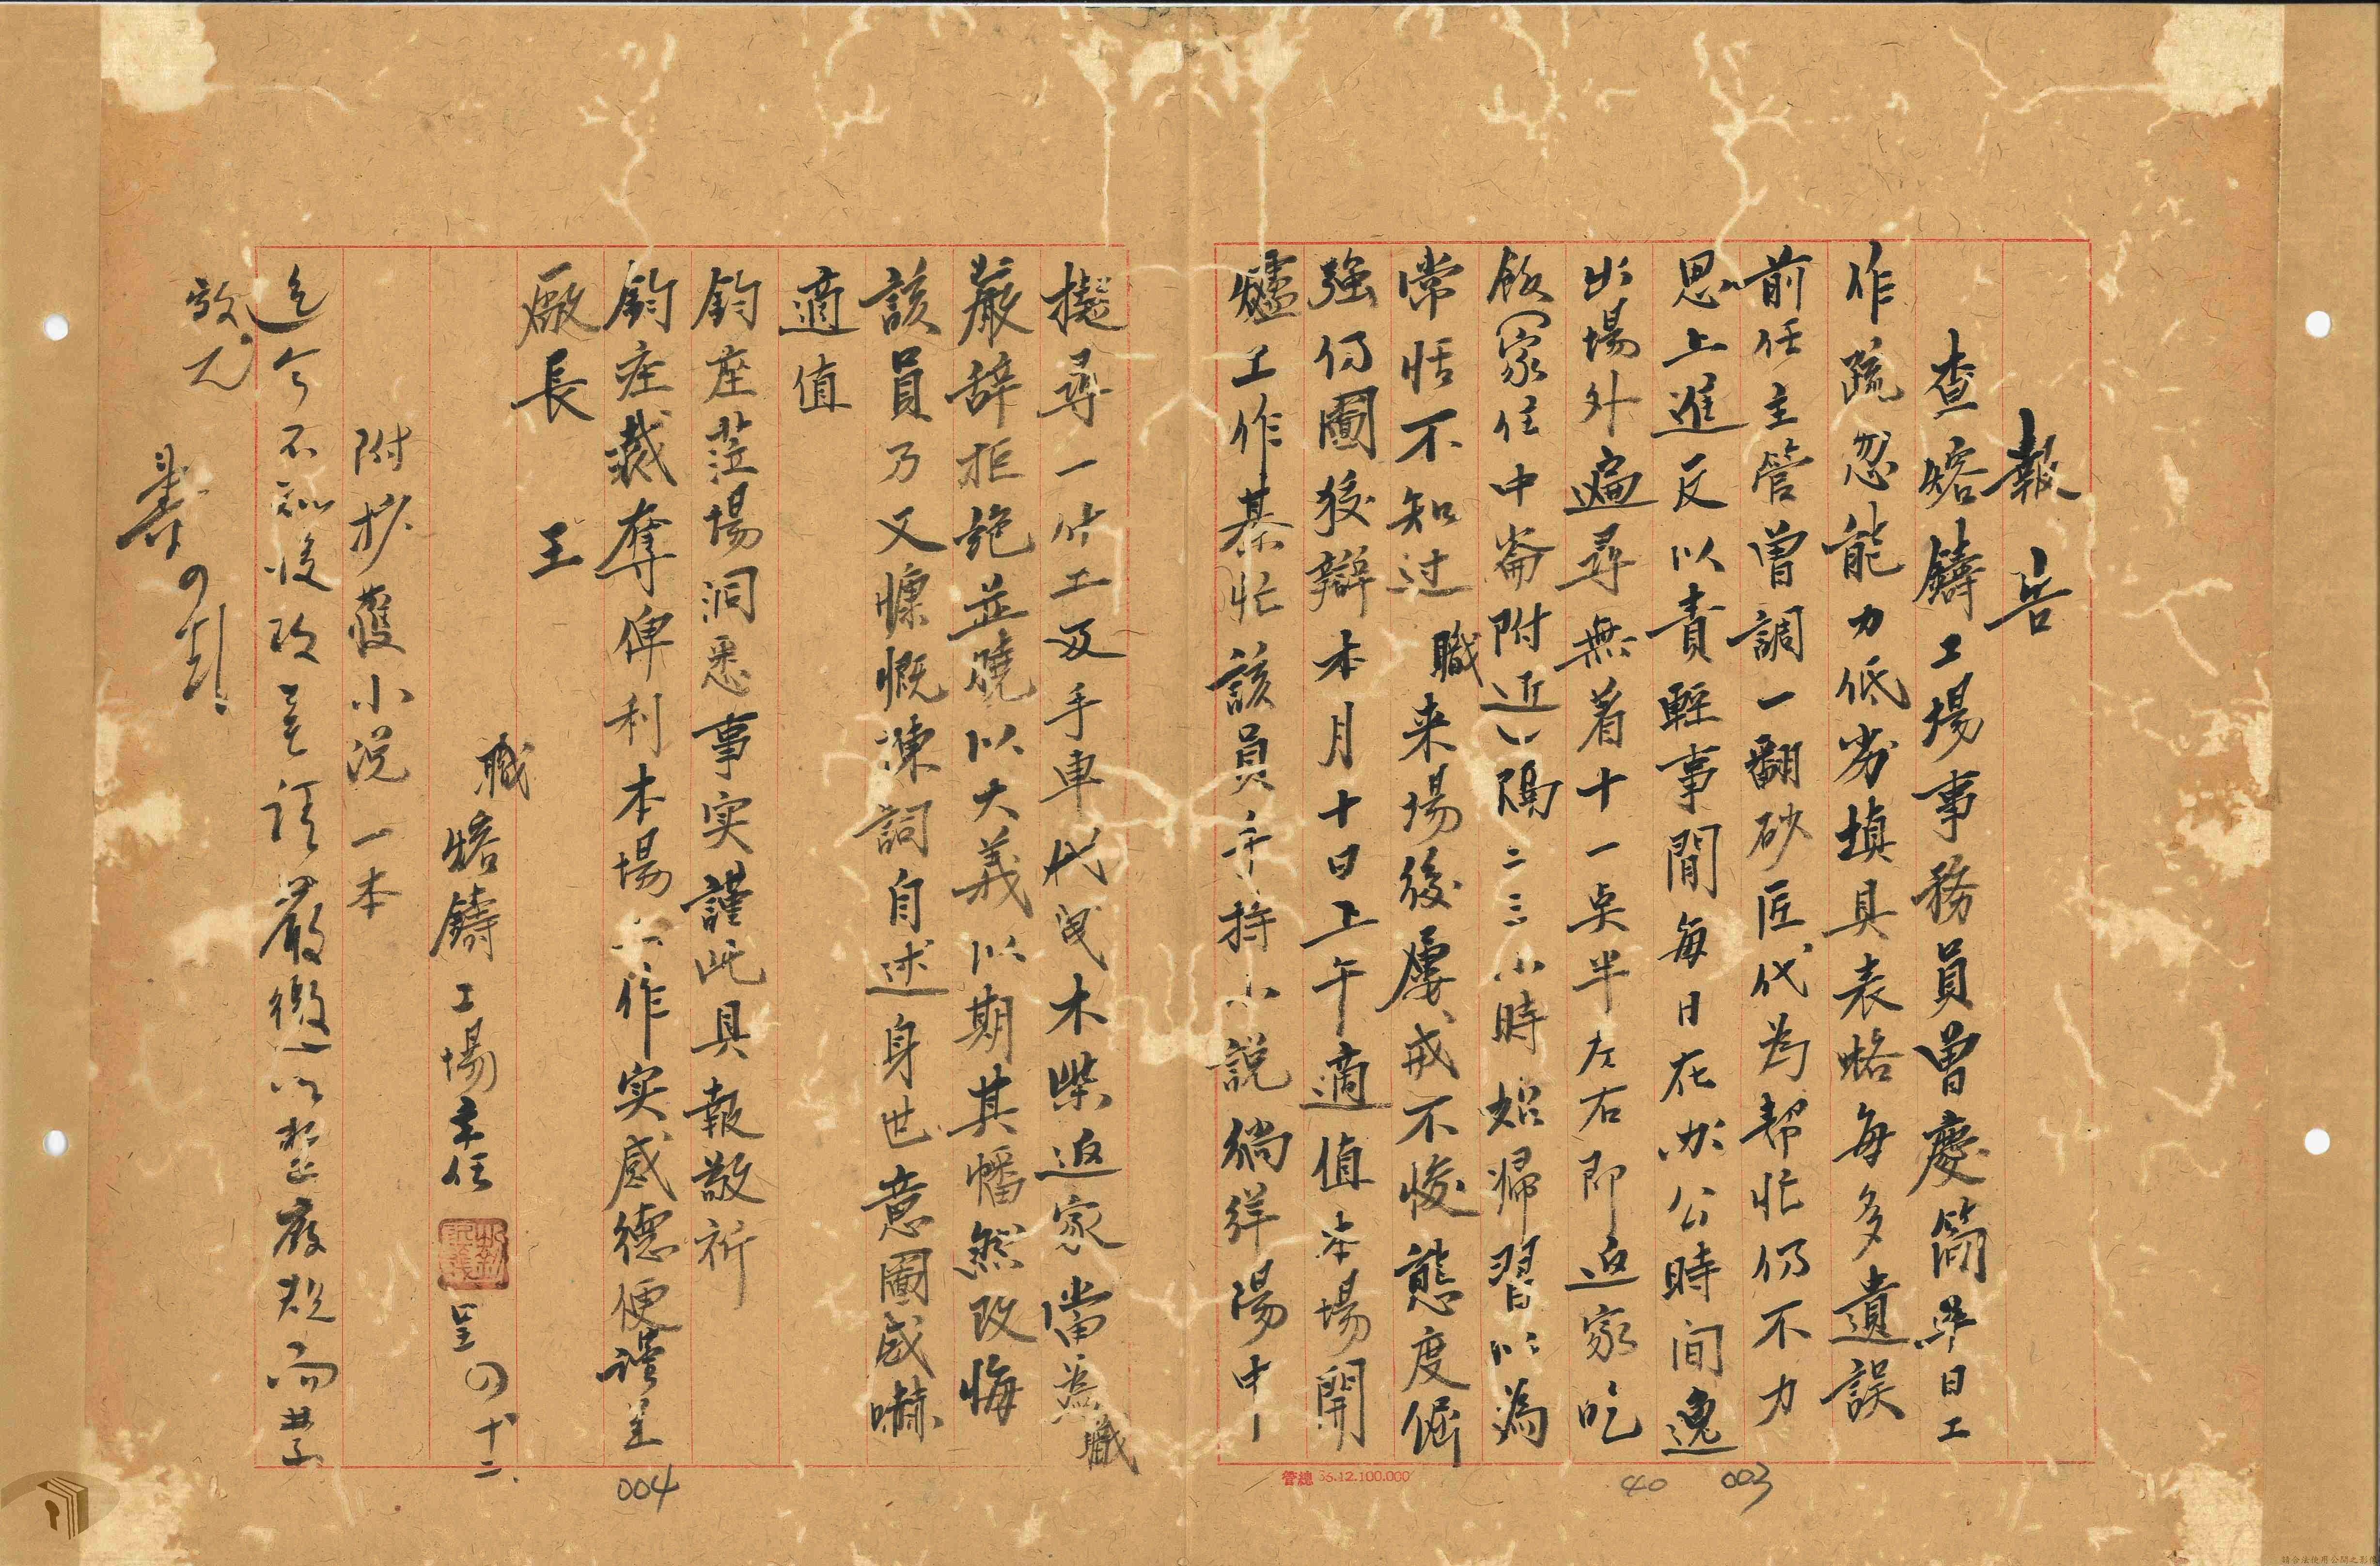 報告
查熔鑄工場事務員曾慶簡平日工
作疏忽能力低劣填具表賂每多遺誤
前任主管曾調一翻砂匠代為帮忙仍不力
思上進反以責輕事閒每日在办公時间逸
出場外遍尋無着十一点半左右即返家吃
飯(家住中崙附近)隔二三小時始歸習以為
常恬不知过職来場後屢戒不悛態度倔
強仍圖狡辯本月十日上午適值本場開
爐工作綦忙該員手持小說徜徉場中
擬尋一件工及手車代曳木柴返家當為職
嚴辞拒絶並曉以大義以期其幡然改悔
該員乃又慷慨陳詞自述身世意圖威嚇
適值
鈞座蒞場洞悉事实謹此具報敬祈
鈞座裁奪俾利本場工作实感德便謹呈
廠長 王
職 熔鑄工場主任 呈 四十二
附抄獲小说一本
迄今不知後改 請嚴懲以整廠规而
效尤
壽
管總 35.12.100.000
40 003
004